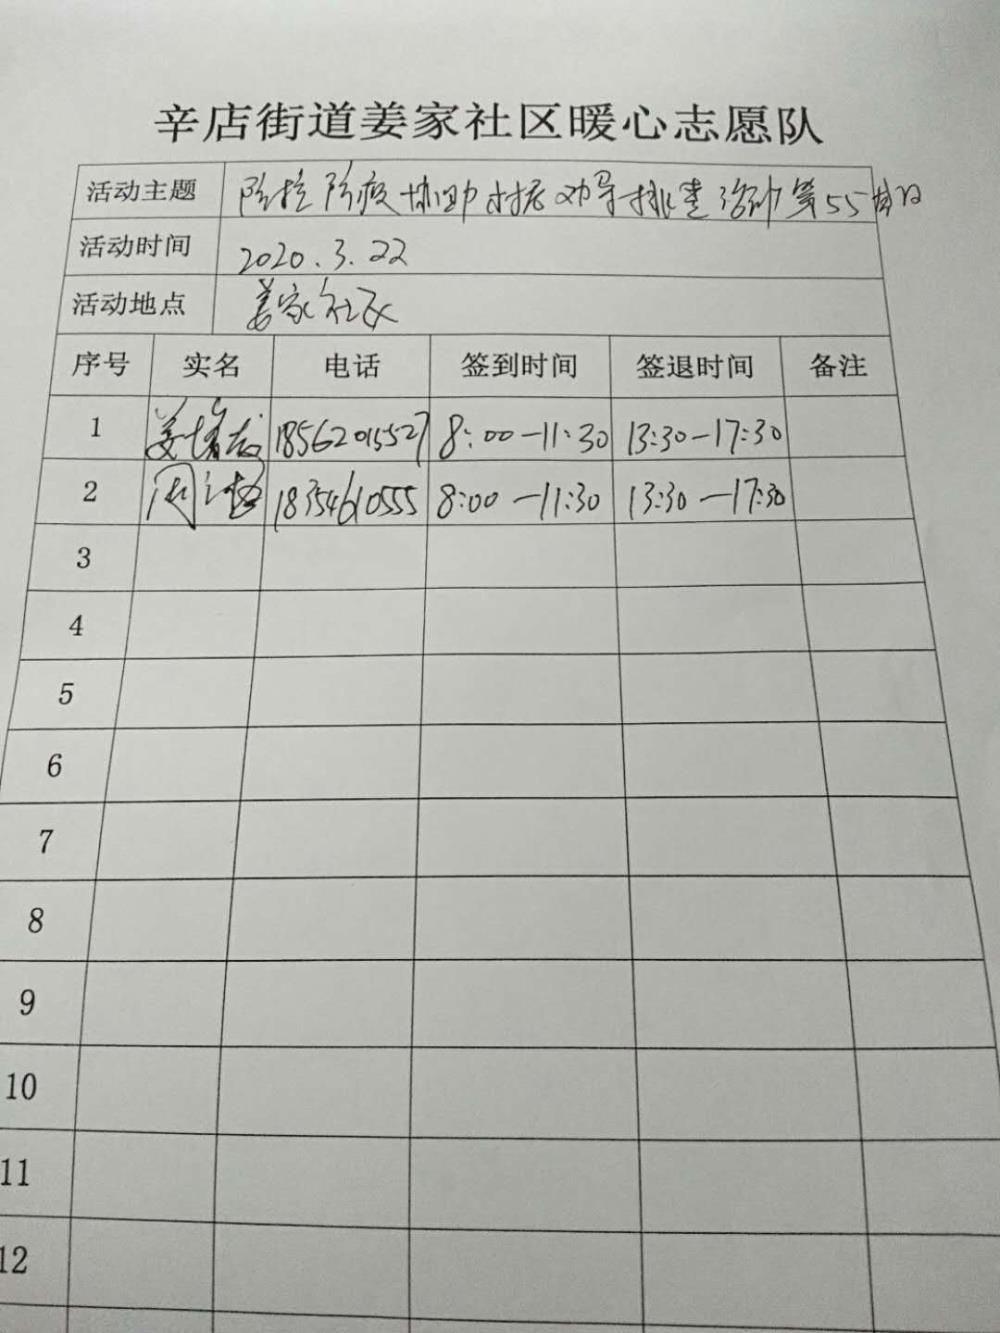 辛店街道姜家社区暖心志愿队
活动主题 防控防疫协助村居劝导排查活动第55日
活动时间 2020.3.22
活动地点 姜家社区
序号 实名 电话 签到时间 签退时间 备注
1 姜 18562015527 8:00-11:30 13:30-17:30
2 周 18354610555 8:00-11:30 13:30-17:30
3
4
5
6
7
8
9
10
11
12